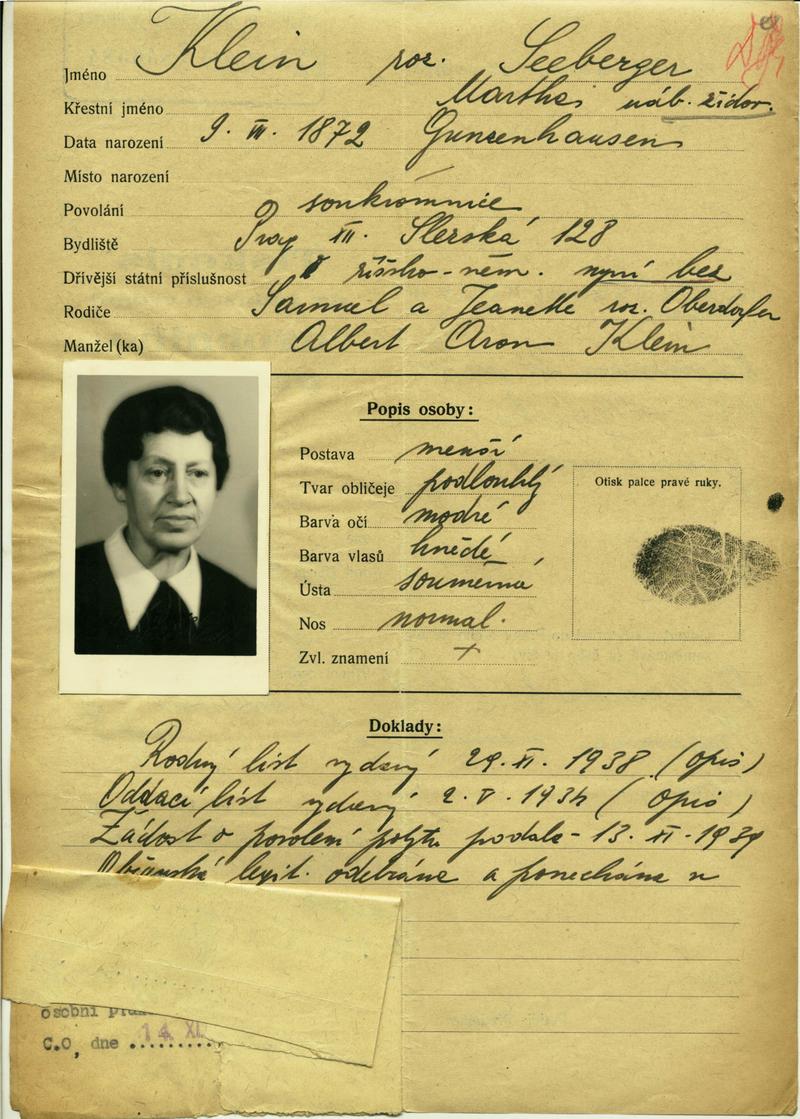 Jméno Klein roz. Seeberger
Křestní jméno Martha náb. židov.
Data narození 9. III. 1872 Gunzenhausen
Místo narození
Povolání soukromnice
Bydliště Prag XII. Slezská 128
Dřívější státní příslušnost říšsko-něm. nyní bez
Rodiče Samuel a Jeanette roz. Oberdorfer
Manžel (ka) Albert Aron Klein
Popis osoby:
Postava menší
Tvar obličeje podlouhlý
Barva očí modré
Barva vlasů hnědé
Ústa souměrná
Nos normal.
Zvl. znamení +
Otisk palce pravé ruky.
Doklady:
Rodný list vydaný 29. XI. 1938 (opis)
Oddací list vydaný 2. V. 1934 (opis)
Žádost o povolení pobytu podala - 13. XI. 1939
Občanská legit. odebrána a ponechána u
osobní
C.O, dne 14. XI.